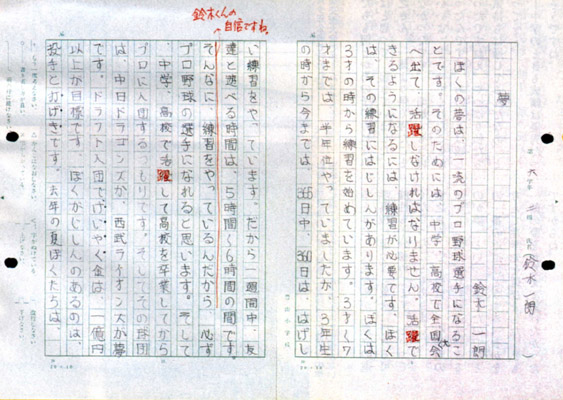 夢
鈴木一朗
ぼくの夢は、一流のプロ野球選手になるこ
とです。そのためには、中学、高校で全国大会
へ出て、活躍しなければなりません。活躍で
きるようになるには、練習が必要です。ぼく
は、その練習にはじしんがあります。ぼくは
3才の時から練習を始めています。3才~7
才までは、半年位やっていましたが、3年生
の時から今までは、365日中、360日は、はげし
い練習をやっています。だから一週間中、友
達と遊べる時間は、5時間~6時間の間です。
そんなに、練習をやっているんだから、必ず
プロ野球の選手になれると思います。そして
、中学、高校で活躍して高校を卒業してから
プロに入団するつもりです。そしてその球団
は、中日ドラゴンズか、西武ライオンズが夢
です。ドラフト入団でけいやく金は、一億円
以上が目標です。ぼくがじしんのあるのは、
投手と打げきです。去年の夏ぼくたちは、
鈴木くんの
自信ですね。
鈴木一朗